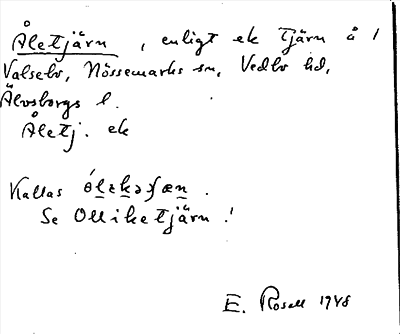 Åletjärn, enligt ek tjärn å 1
Valsebo, Nössemarks sn, Vedbo hd,
Älvsborgs l.
Åletj. ek
Kallas
Se Olliketjärn!
E. Rosell 1948